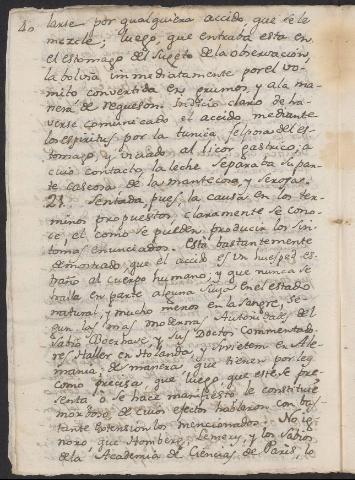 40
larse por qualquiera accido, que se le
mezcle; luego, que entraba esta en
el estomago del Sugeto de la observacion,
la bolvia immediatamente por el vo-
mito convertida en grumos, y a la ma-
nera de requeson: Indicio claro de ha-
verse comunicado el accido mediante
los espiritus por la tunica felposa del es-
tomago, y viciado al licor gastrico; a
cuio contacto, la leche separaba su par-
te caseosa de la mantecosa, y serosa.
21. Sentada, pues, la causa en los ter-
minos propuestos, claramente se cono-
ce, el como se pueden producir los Sin-
tomas enunciados. Esta bastantemente
demostrado, que el accido es un huesped es-
traño al cuerpo humano, y que nunca se
halla en parte alguna suya en el estado
natural, y mucho menos en la sangre, se-
gun las mas modernas Autoridades del
Sabio Boerhave, y sus Doctos Commentado-
res Haller en Holanda, y Swieten en Ale-
mania: de manera, que tienen por leg
como precisa, que luego, que este se pre-
senta o se hace manifiesto, le constituie
morboso, de cuios efectos hablaron con bas-
tante extension los mencionados. No ig-
noro, que Homberg, Lemery, y los Sabios
de la Academia de Ciencias de Paris, lo